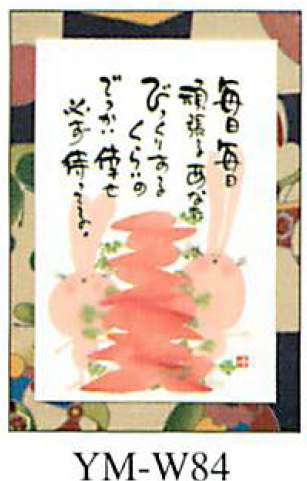 毎日毎日
頑張るあなた
びっくりする
くらいの
でっかい倖せ
必ず待ってるよ。
YM-W84